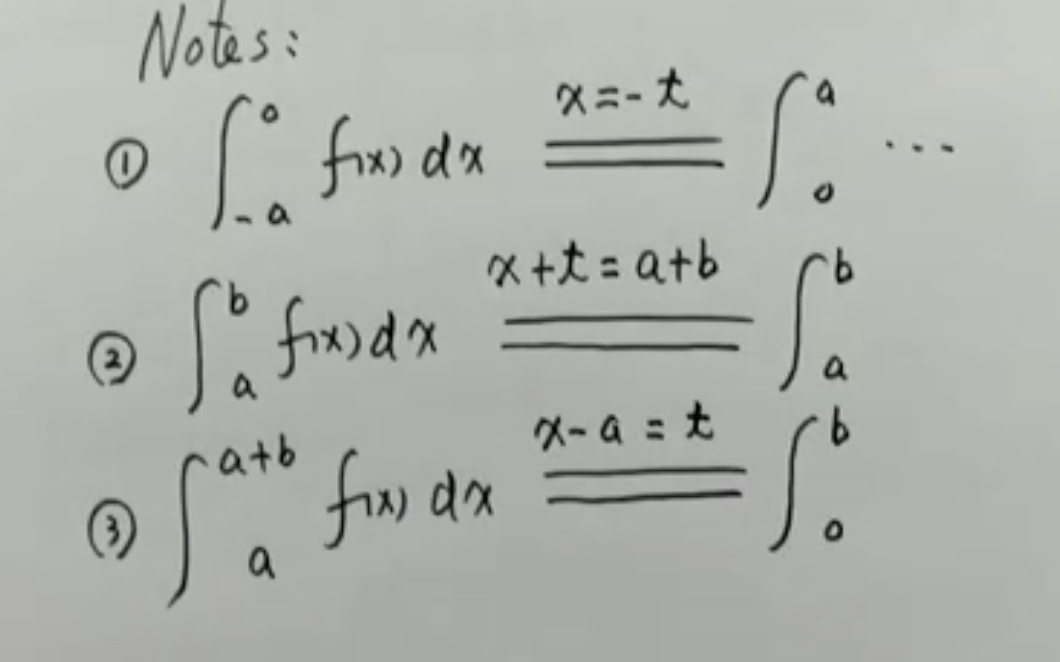 Notes:
① ∫_{-a}^{0} f(x) dx \xlongequal{x=-t} ∫_{0}^{a} ...
② ∫_{a}^{b} f(x) dx \xlongequal{x+t=a+b} ∫_{a}^{b}
③ ∫_{a}^{a+b} f(x) dx \xlongequal{x-a=t} ∫_{0}^{b}